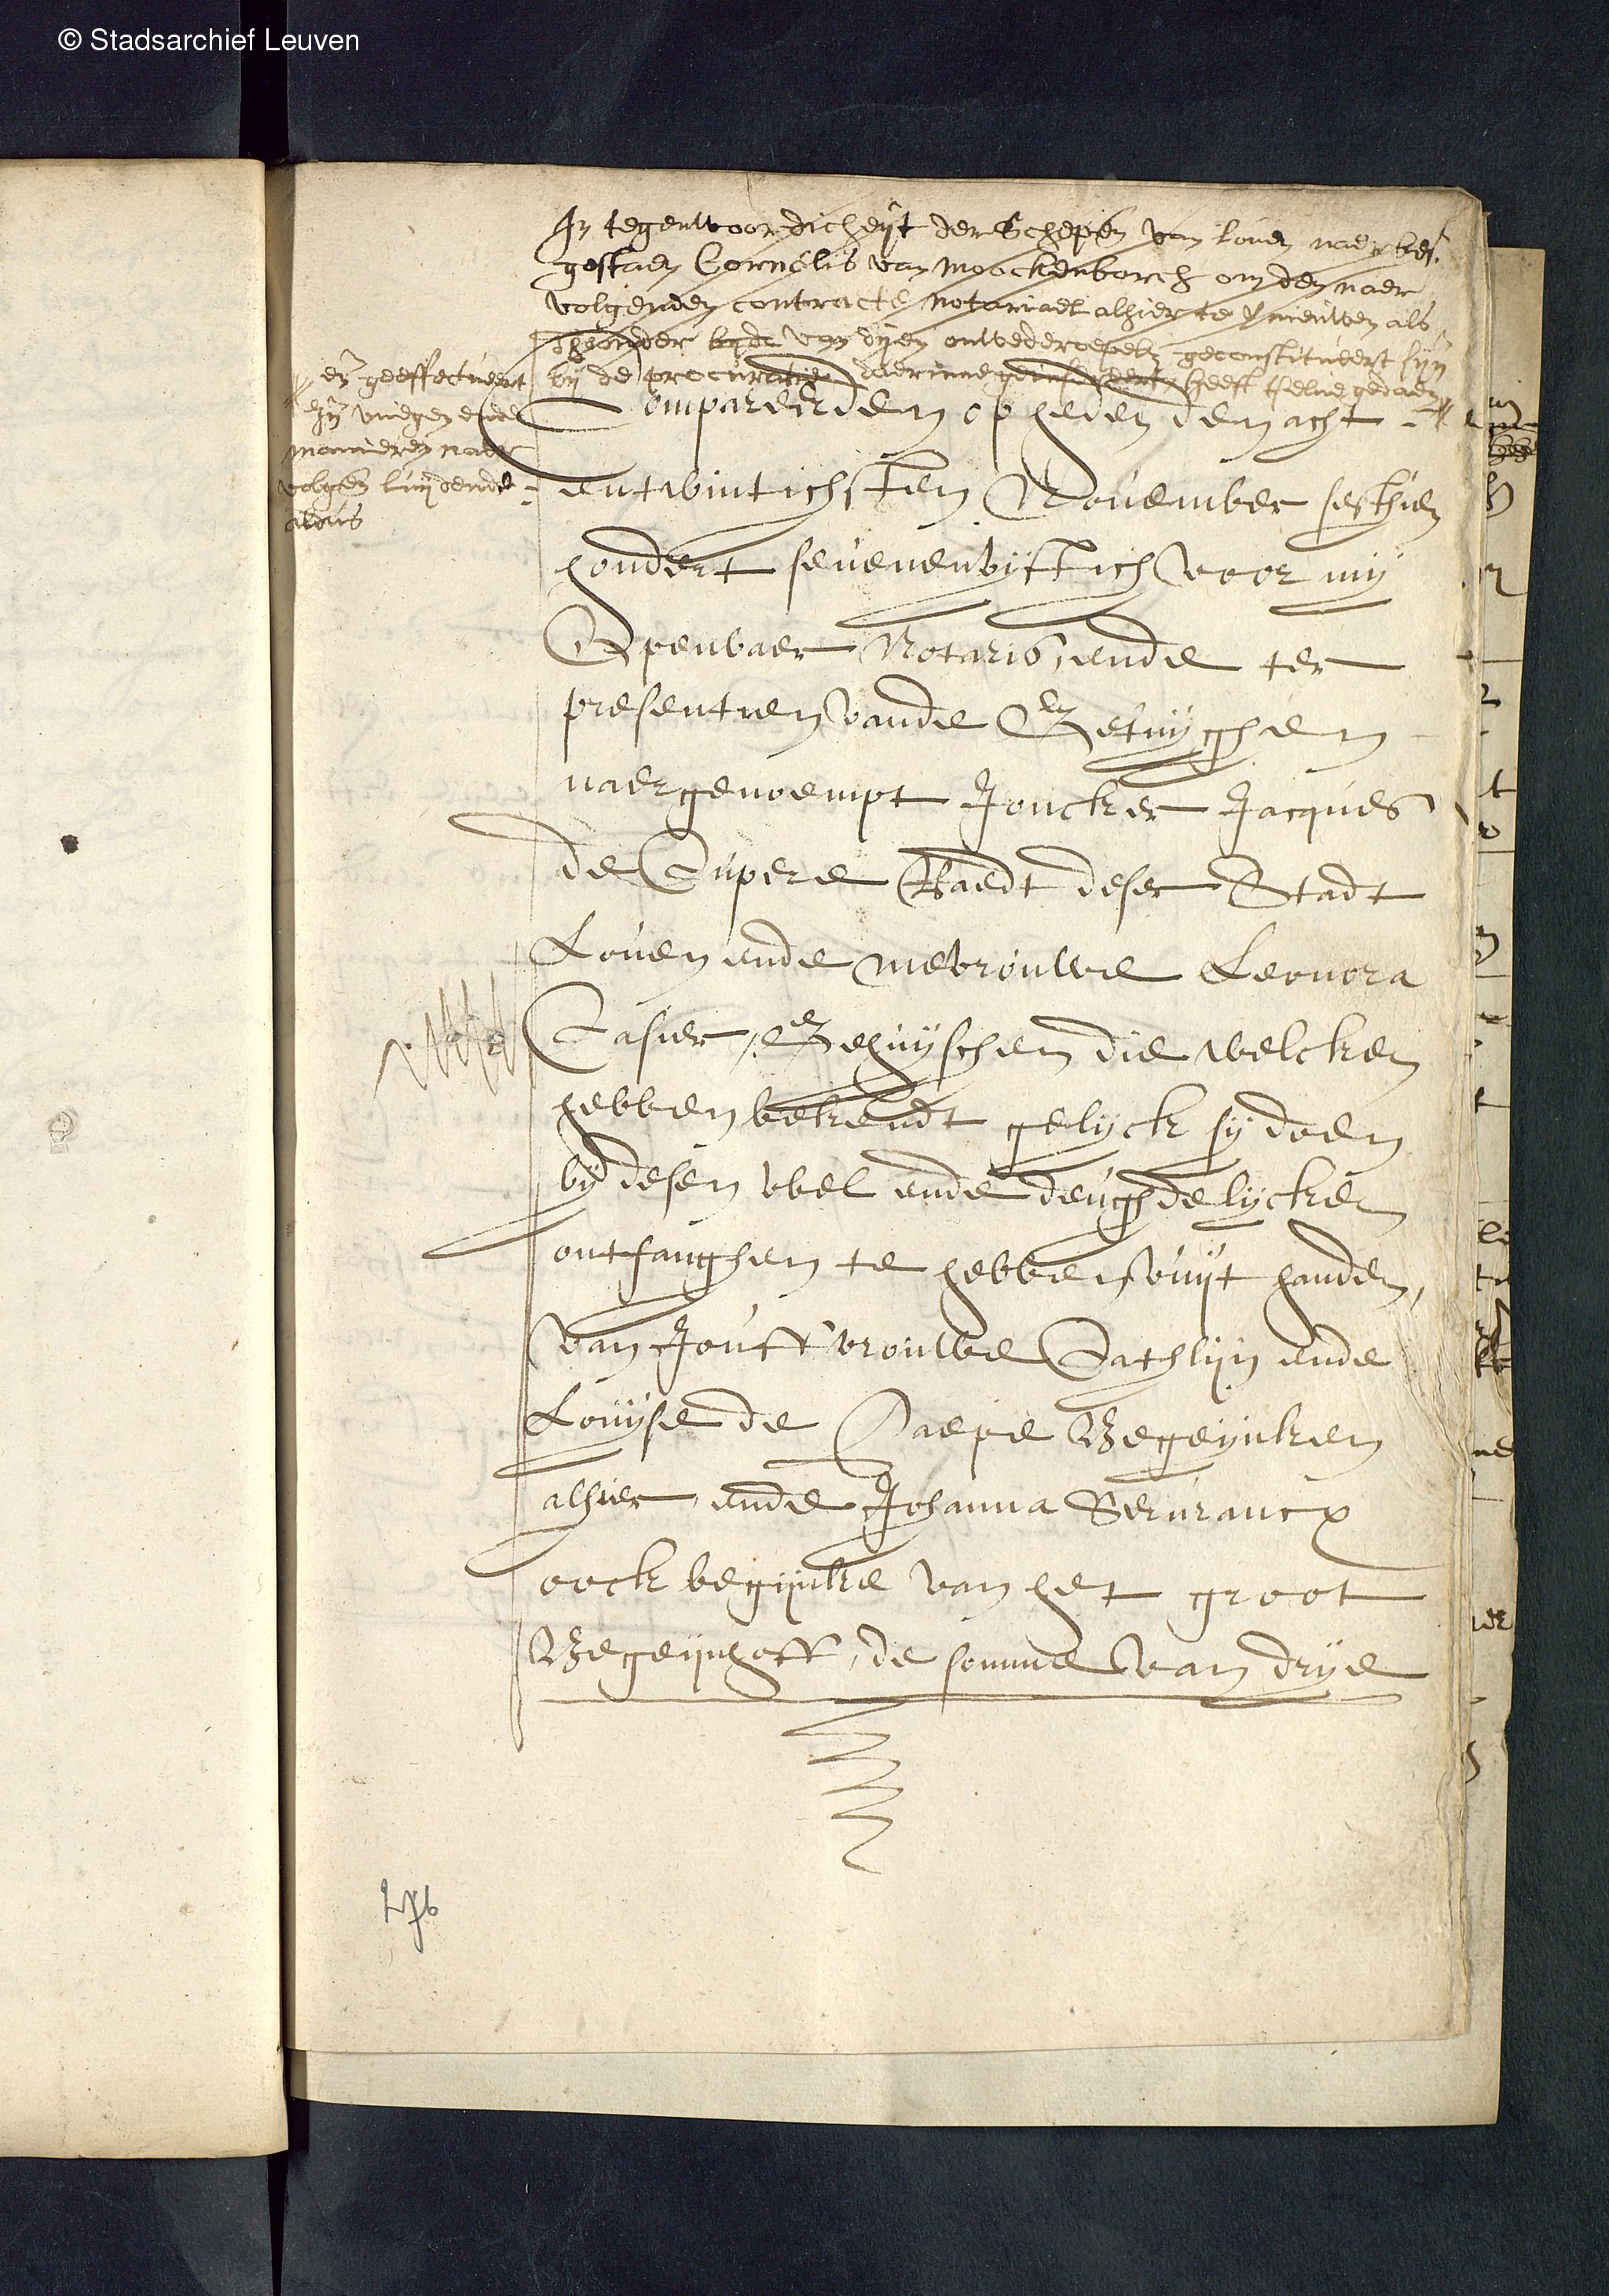 © Stadsarchief Leuven
In tegenwoordicheijt der Schepen van loven naer bes.
gestaen Cornelis van Moockenborch om den naer
volgenden contracte notariael alhier te vernieuwen als
thoonder bijde van dijen onwederoepelt geconstitueert sijn
bij de procuratie daerinne geinsereert heeft tselve gedaen
en geeffectueert
In vuegen ende
manieren naer
volgen luijdende
aldus
Compareerden op heden den acht
entwintichsten November sesthien
hondert sevenenvijftich voor mij
Openbaer Notaris, ende ter
presentien vande Getuijghen
naergenoempt Joncker Jacques
de Cupere Raedt deser Stadt
Loven ende mevrouwe Leonora
Casier, Gehuijschen die welcken
hebben bekendt gelijck sij doen
bij desen wel ende deughdelijcken
ontfanghen te hebben vuijt handen,
van Jouff vrouwe Cathlijn ende
Louijse de Paepe Begeijnken
alhier, ende Johanna Servrancx
oock begijnke van het groot
Begeijnhoff, de somme van drije